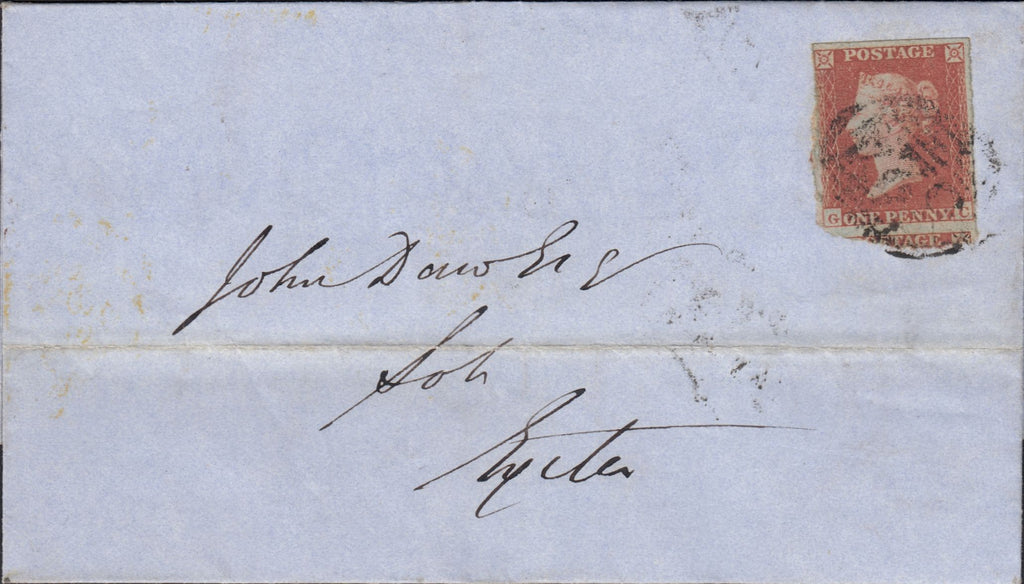 POSTAGE
G ONE PENNY
John Daw Esq
Solr
Exeter